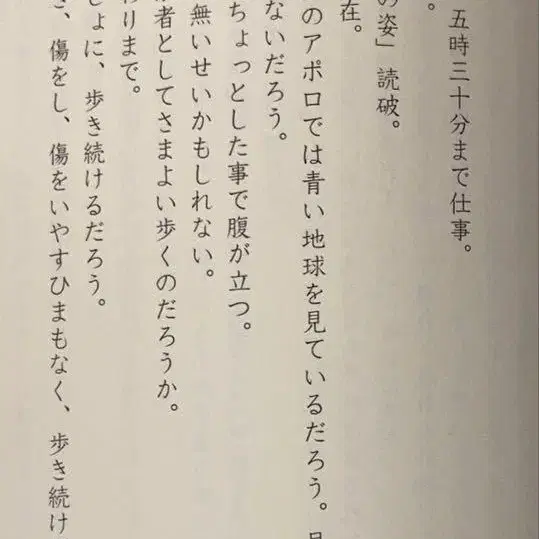 五時三十分まで仕事。
。
の姿」読破。
在。
のアポロでは青い地球を見ているだろう。
ないだろう。
ちょっとした事で腹が立つ。
無いせいかもしれない。
者としてさまよい歩くのだろうか。
わりまで。
しょに、歩き続けるだろう。
き、傷をし、傷をいやすひまもなく、歩き続け